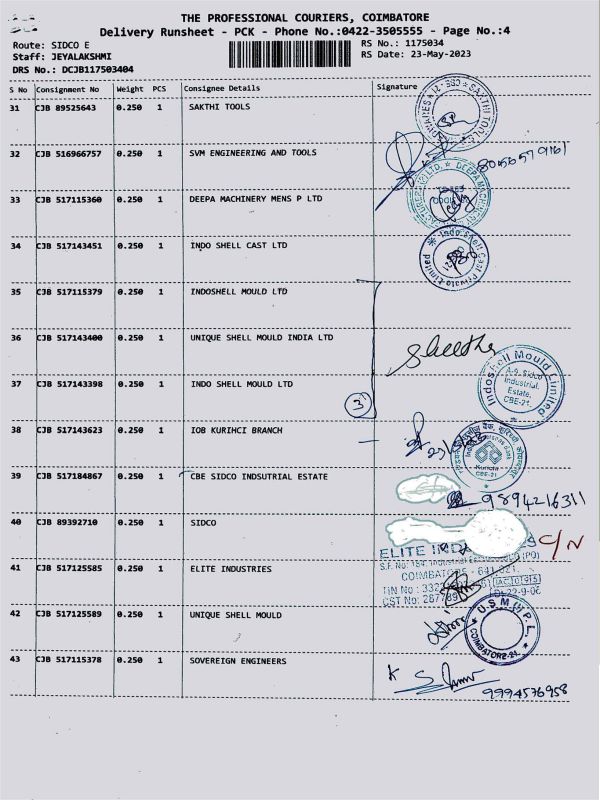 THE PROFESSIONAL COURIERS, COIMBATORE
Delivery Runsheet - PCK - Phone No.:0422-3505555 - Page No.:4
Route: SIDCO E
RS No.: 1175034
Staff: JEYALAKSHMI
RS Date: 23-May-2023
DRS No.: DCJB117503404
S No Consignment No Weight PCS Consignee Details Signature
31 CJB 89525643 0.250 1 SAKTHI TOOLS
SAKTHI TOOLS
32 CJB 516966757 0.250 1 SVM ENGINEERING AND TOOLS
33 CJB 517115360 0.250 1 DEEPA MACHINERY MENS P LTD
34 CJB 517143451 0.250 1 INDO SHELL CAST LTD
Indo Shell Cast Private Limited
35 CJB 517115379 0.250 1 INDOSHELL MOULD LTD
36 CJB 517143400 0.250 1 UNIQUE SHELL MOULD INDIA LTD
37 CJB 517143398 0.250 1 INDO SHELL MOULD LTD
3
Indoshell Mould Limited
A-9, Sidco
Industrial
Estate,
CBE-21.
38 CJB 517143623 0.250 1 IOB KURIHCI BRANCH
Kurichi
CBE-21
39 CJB 517184867 0.250 1 CBE SIDCO INDSUTRIAL ESTATE
9894216311
40 CJB 89392710 0.250 1 SIDCO
C/N
ELITE
COIMBATORE - 641 021.
41 CJB 517125585 0.250 1 ELITE INDUSTRIES
42 CJB 517125589 0.250 1 UNIQUE SHELL MOULD
U.S.M (I) P.L.
COIMBATORE-21
43 CJB 517115378 0.250 1 SOVEREIGN ENGINEERS
9994576958